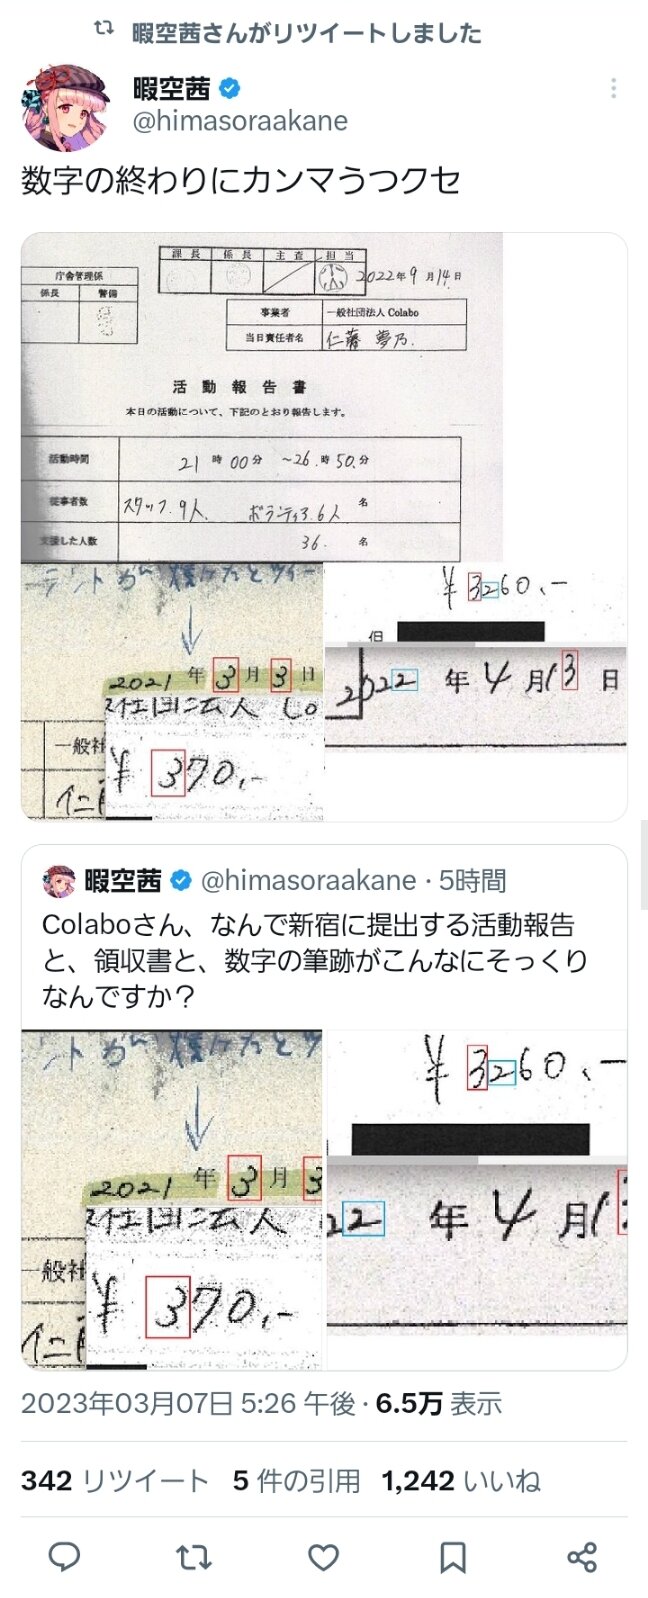 暇空茜さんがリツイートしました
暇空茜
@himasoraakane
数字の終わりにカンマうつクセ
課長 係長 主査 担当
2022年9月14日
庁舎管理係
係長 警備
事業者 一般社団法人 Colabo
当日責任者名 仁藤 夢乃.
活動報告書
本日の活動について、下記のとおり報告します。
活動時間 21時00分 ~26.時50.分
従事者数 スタッフ.9人. ボランティア.6人 名
支援した人数 36. 名
2021年3月3日
社団法人 Co
一般社
¥370.-
¥3260.-
但
2022年4月13日
暇空茜 @himasoraakane · 5時間
Colaboさん、なんで新宿に提出する活動報告
と、領収書と、数字の筆跡がこんなにそっくり
なんですか？
2021年3月3
社団法人
一般社
¥370.-
¥3260.-
22年4月13
2023年03月07日 5:26 午後 · 6.5万 表示
342 リツイート 5 件の引用 1,242 いいね